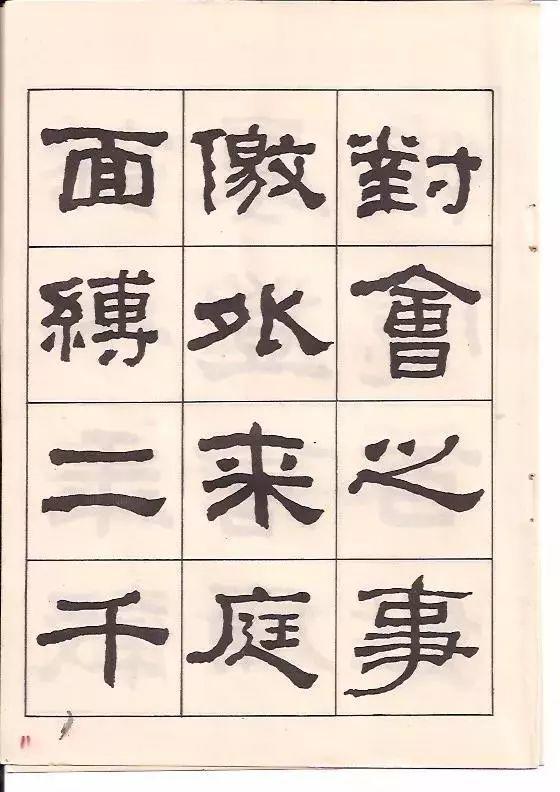 對會之事
儌外來庭
面縛二千
11